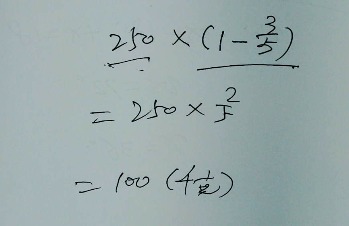 250 × (1 - 3/5)
= 250 × 2/5
= 100 (